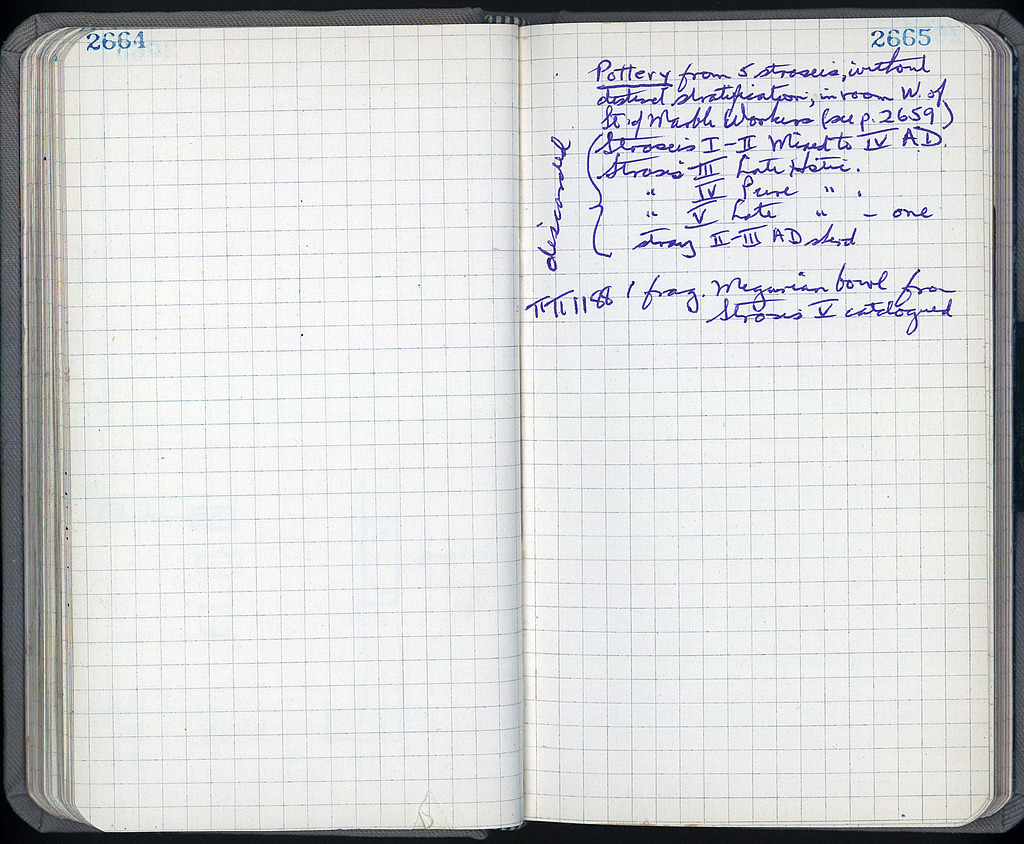 2664
2665
Pottery from 5 stroseis, without
distinct stratification, in room W. of
St. of Marble Workers (see p. 2659)
discarded
Stroseis I-II Mixed to IV AD.
Strosis III Late Hstic.
" IV Pure " .
" V Late " - one
stray II-III AD sherd
ΠΠ 1188 1 frag. Megarian bowl from
Strosis V catalogued